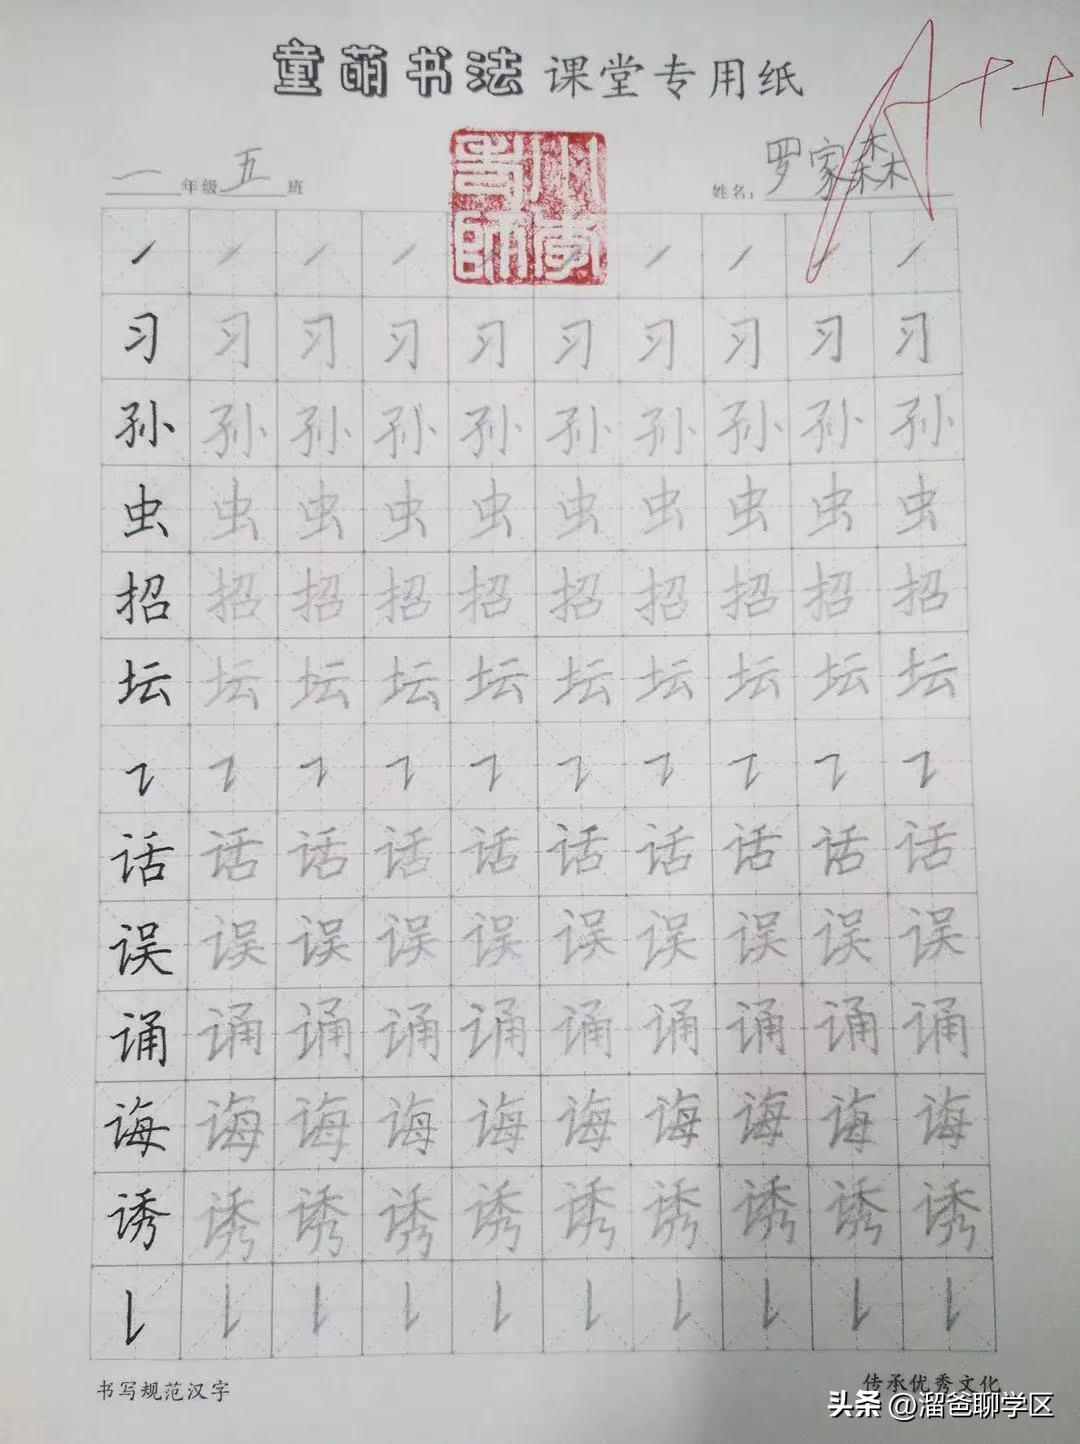 童萌书法 课堂专用纸
A++
一年级五班 姓名:罗家森
习习习习习习习习习习
孙孙孙孙孙孙孙孙孙孙
虫虫虫虫虫虫虫虫虫虫
招招招招招招招招招招
坛坛坛坛坛坛坛坛坛坛
话话话话话话话话话话
误误误误误误误误误误
诵诵诵诵诵诵诵诵诵诵
诲诲诲诲诲诲诲诲诲诲
诱诱诱诱诱诱诱诱诱诱
书写规范汉字 传承优秀文化
头条 @溜爸聊学区